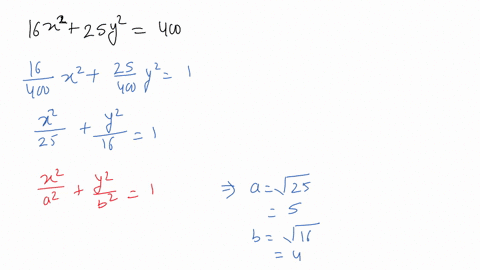 16x² + 25y² = 400
16/400 x² + 25/400 y² = 1
x²/25 + y²/16 = 1
x²/a² + y²/b² = 1
⇒ a = √25
= 5
b = √16
= 4